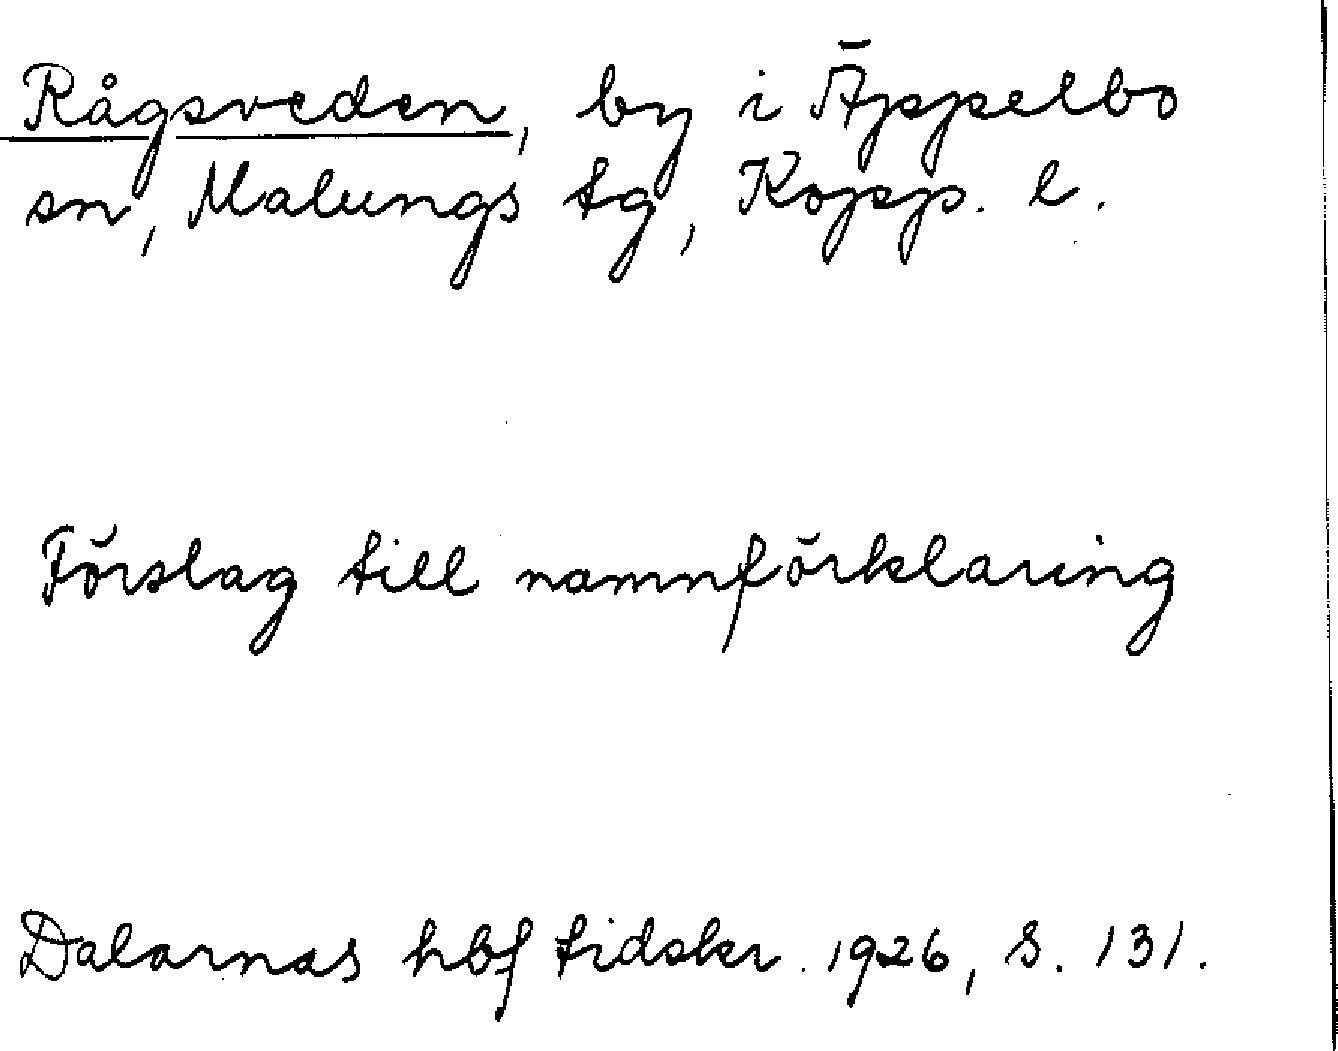 Rågsveden, by i Äppelbo
sn, Malungs tg, Kopp. l.
Förslag till namnförklaring
Dalarnas hbf tidskr. 1926, s. 131.